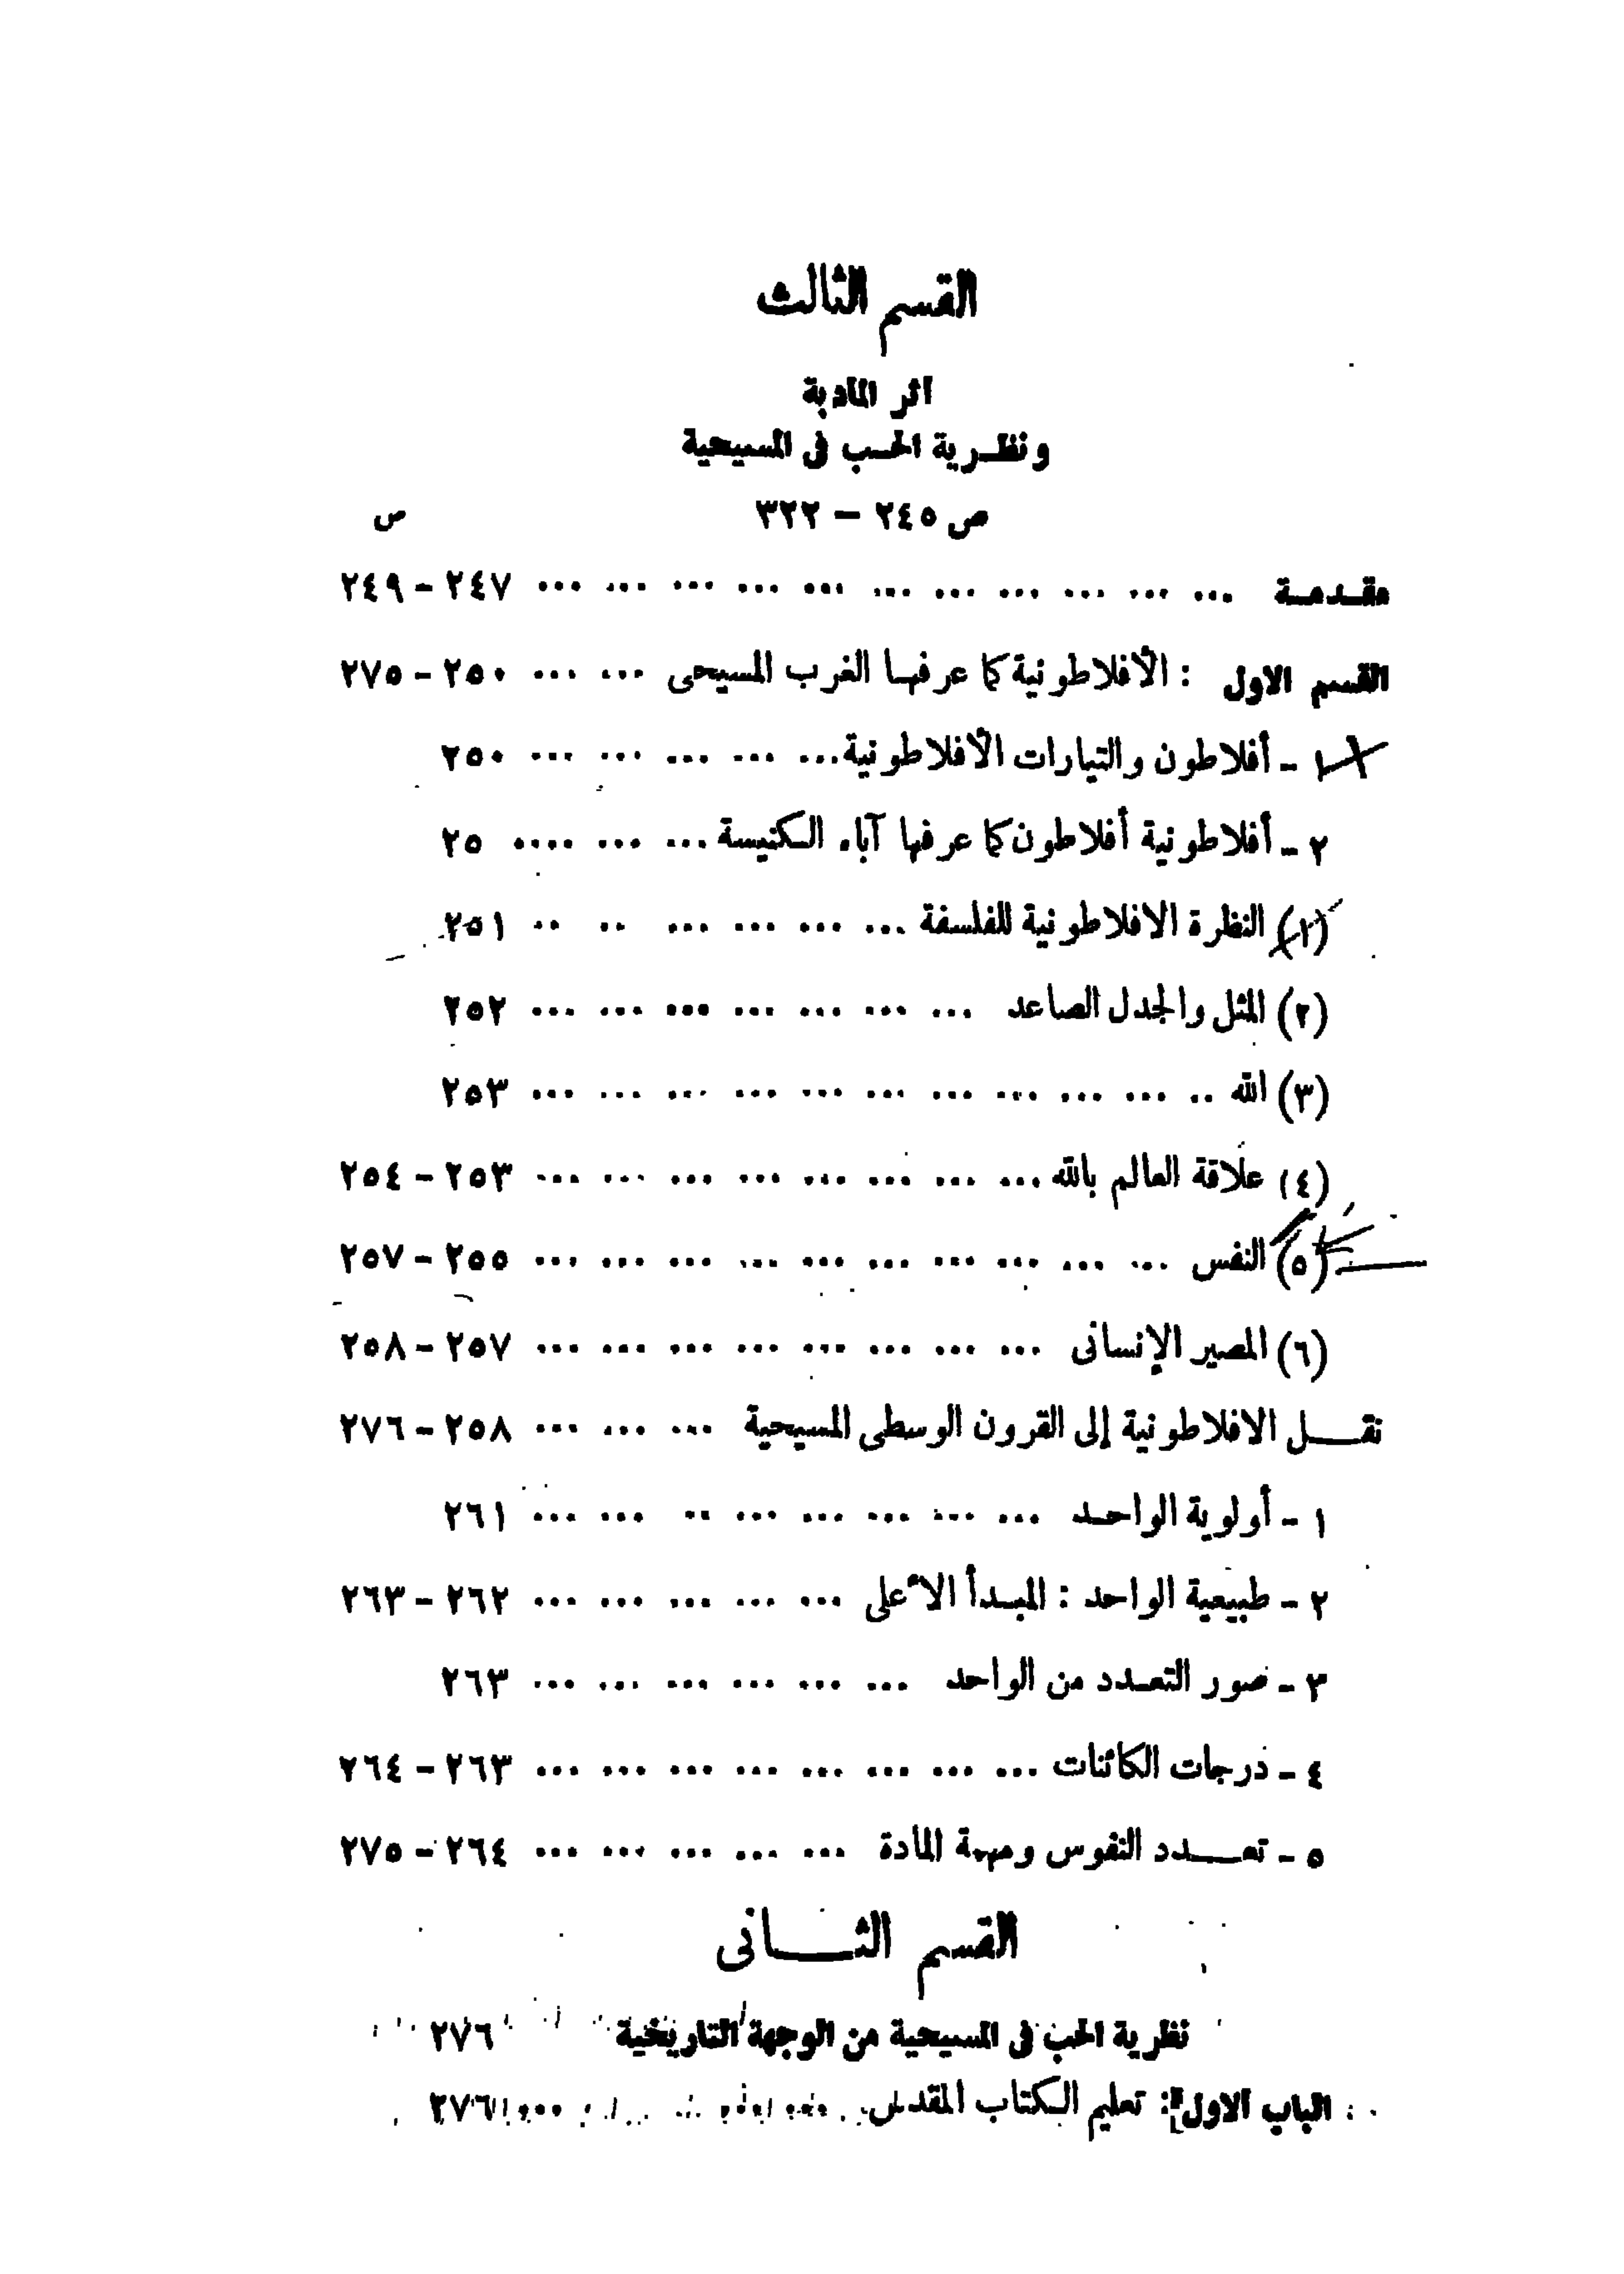 القسم الثالث
اثر المادبة
ونظرية الحب فى المسيحية
ص ٢٤٥ – ٣٢٢
ص
مقدمة ... ... ... ... ... ... ... ... ... ... ... ٢٤٧ – ٢٤٩
القسم الاول : الأفلاطونية كما عرفها الغرب المسيحى ... ... ٢٥٠ – ٢٧٥
١ – أفلاطون والتيارات الأفلاطونية ... ... ... ... ... ٢٥٠
٢ – أفلاطونية أفلاطون كما عرفها آباء الكنيسة ... ... .... ٢٥
(١) النظرة الافلاطونية للفلسفة ... ... ... ... .. .. ٢٥١
(٢) المثل والجدل الصاعد ... ... ... ... ... ... ... ٢٥٢
(٣) الله .. ... ... ... ... ... ... ... ... ... ... ٢٥٣
(٤) علاقة العالم بالله ... ... ... ... ... ... ... ... ٢٥٣ – ٢٥٤
(٥) النفس ... ... ... ... ... ... ... ... ... ... ٢٥٥ – ٢٥٧
(٦) المصير الإنسانى ... ... ... ... ... ... ... ... ٢٥٧ – ٢٥٨
نقل الافلاطونية إلى القرون الوسطى المسيحية ... ... ... ٢٥٨ – ٢٧٦
١ – أولوية الواحد ... ... ... ... ... .. ... ... ٢٦١
٢ – طبيعية الواحد : المبدأ الأعلى ... ... ... ... ... ٢٦٢ – ٢٦٣
٣ – صور التعدد من الواحد ... ... ... ... ... ... ٢٦٣
٤ – درجات الكائنات ... ... ... ... ... ... ... ... ٢٦٣ – ٢٦٤
٥ – تعدد النفوس ومهمة المادة ... ... ... ... ... ٢٦٤ – ٢٧٥
القسم الثانى
نظرية الحب فى المسيحية من الوجهة التاريخية ٢٧٦
الباب الاول : تعليم الكتاب المقدس ... ... ... ٢٧٦